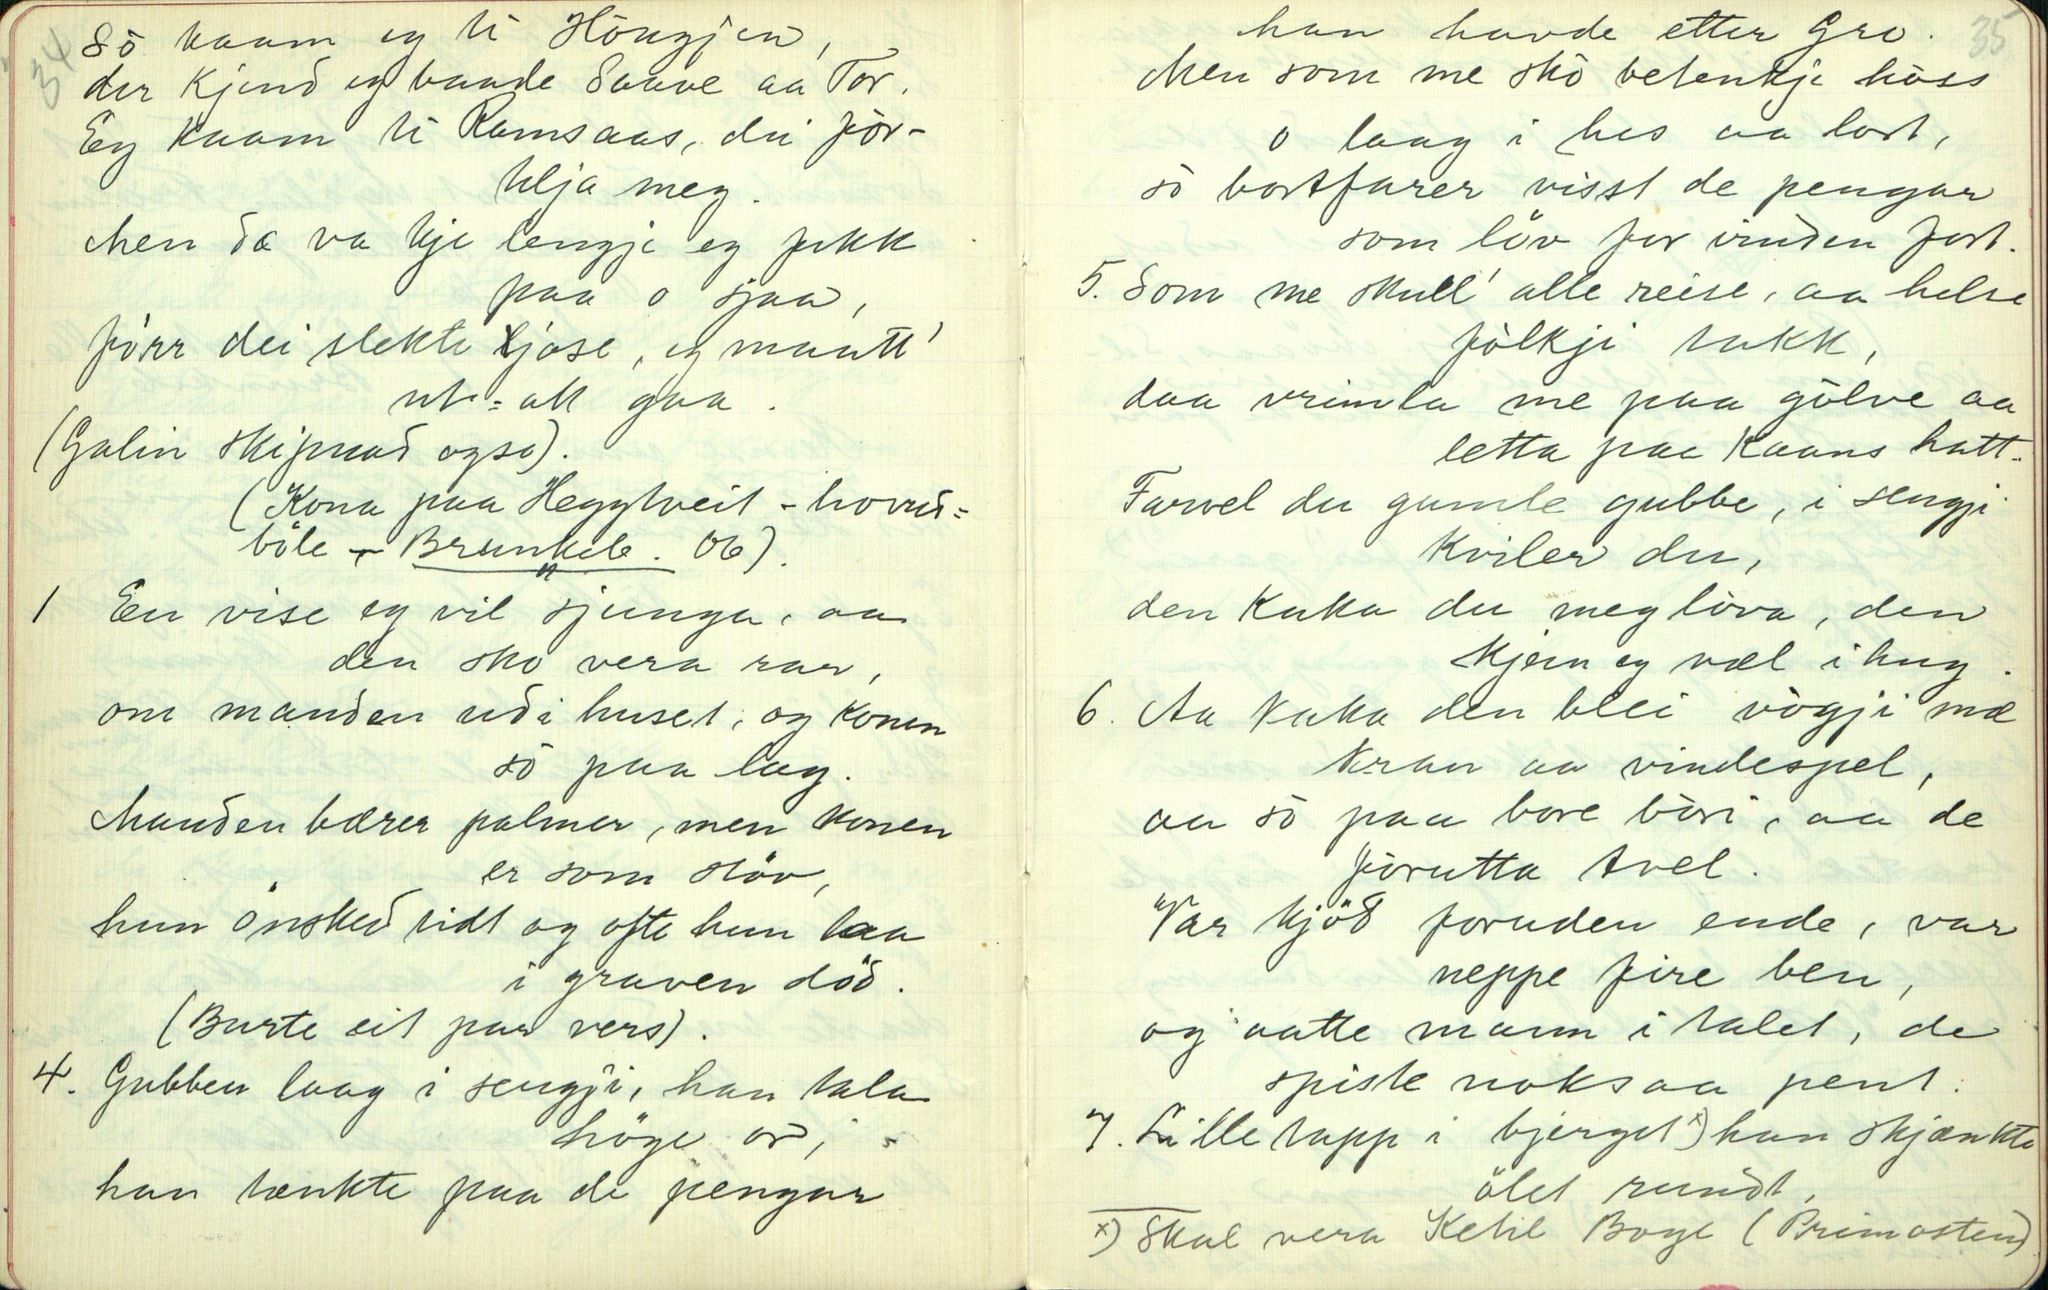 34
Sò kaam eg ti Höugjen,
der kjend eg baade Saave aa Tor.
Eg kaam ti Ramsaas, dei fòr-
telja meg.
Men dæ va kje lengje eg fekk
paa o sjaa,
fòrr dei slekte ljose, eg maatt'
ut-att gaa.
(Galin skipnad ogso).
(Kona paa Heggtveit - hovud=
böle - Brunkeb. 06).
1 En vise eg vil sjunga, aa
den sko vera rar,
om manden udi huset, og konen
sò paa lag.
Manden bærer palmer, men konen
er som stöv,
hun önsked tidt og ofte hun laa
i graven död.
(Burte eit par vers).
4. Gubben laag i sengji, han tala
höge or, -
han tænkte paa de pengar
35
han havde etter Gro.
Men som me skò betenkje hòss
o laag i hes aa lort,
sò bortfarer visst de pengar
som löv for vinden fort.
5. Som me skull' alle reise, aa helse
fòlkji takk,
daa vrimla me paa gòlve aa
letta paa kaans hatt.
Farvel du gamle gubbe, i sengji
kviler du,
den kaka du meg lòva, den
kjem eg væl i hug.
6. Aa kaka den blei vògji mæ
kran aa vindespel,
aa sò paa bore bòri, aa de
fòrutta tvel.
Var kjöd foruden ende, var
neppe fire ben,
og aatte mann i talet, de
spiste noksaa pent.
7. Lille tapp i bjerget x) han skjænkte
ölet rundt,
x) Skal vera Ketil Boge (Primosten)